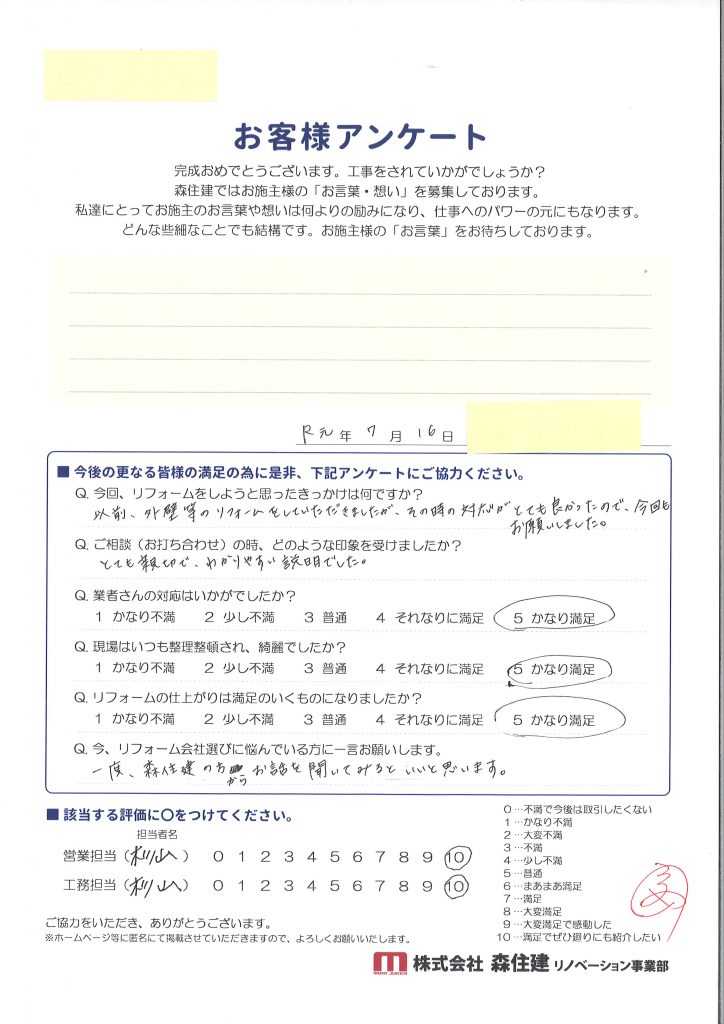 お客様アンケート
完成おめでとうございます。工事をされていかがでしょうか？
森住建ではお施主様の「お言葉・想い」を募集しております。
私達にとってお施主のお言葉や想いは何よりの励みになり、仕事へのパワーの元にもなります。
どんな些細なことでも結構です。お施主様の「お言葉」をお待ちしております。
R元年 7月 16日
■ 今後の更なる皆様の満足の為に是非、下記アンケートにご協力ください。
Q. 今回、リフォームをしようと思ったきっかけは何ですか？
以前、外壁等のリフォームをしていただきましたが、その時の対応がとても良かったので、今回も
お願いしました。
Q. ご相談（お打ち合わせ）の時、どのような印象を受けましたか？
とても親切で、わかりやすい説明でした。
Q. 業者さんの対応はいかがでしたか？
1 かなり不満 2 少し不満 3 普通 4 それなりに満足 5 かなり満足
Q. 現場はいつも整理整頓され、綺麗でしたか？
1 かなり不満 2 少し不満 3 普通 4 それなりに満足 5 かなり満足
Q. リフォームの仕上がりは満足のいくものになりましたか？
1 かなり不満 2 少し不満 3 普通 4 それなりに満足 5 かなり満足
Q. 今、リフォーム会社選びに悩んでいる方に一言お願いします。
一度、森住建の方からお話を聞いてみるといいと思います。
■ 該当する評価に〇をつけてください。
担当者名
営業担当（杉山） 0 1 2 3 4 5 6 7 8 9 10
工務担当（杉山） 0 1 2 3 4 5 6 7 8 9 10
0…不満で今後は取引したくない
1…かなり不満
2…大変不満
3…不満
4…少し不満
5…普通
6…まあまあ満足
7…満足
8…大変満足
9…大変満足で感動した
10…満足でぜひ廻りにも紹介したい
ご協力をいただき、ありがとうございます。
※ホームページ等に匿名にて掲載させていただきますので、よろしくお願いいたします。
MORI JUKEN 株式会社 森住建 リノベーション事業部